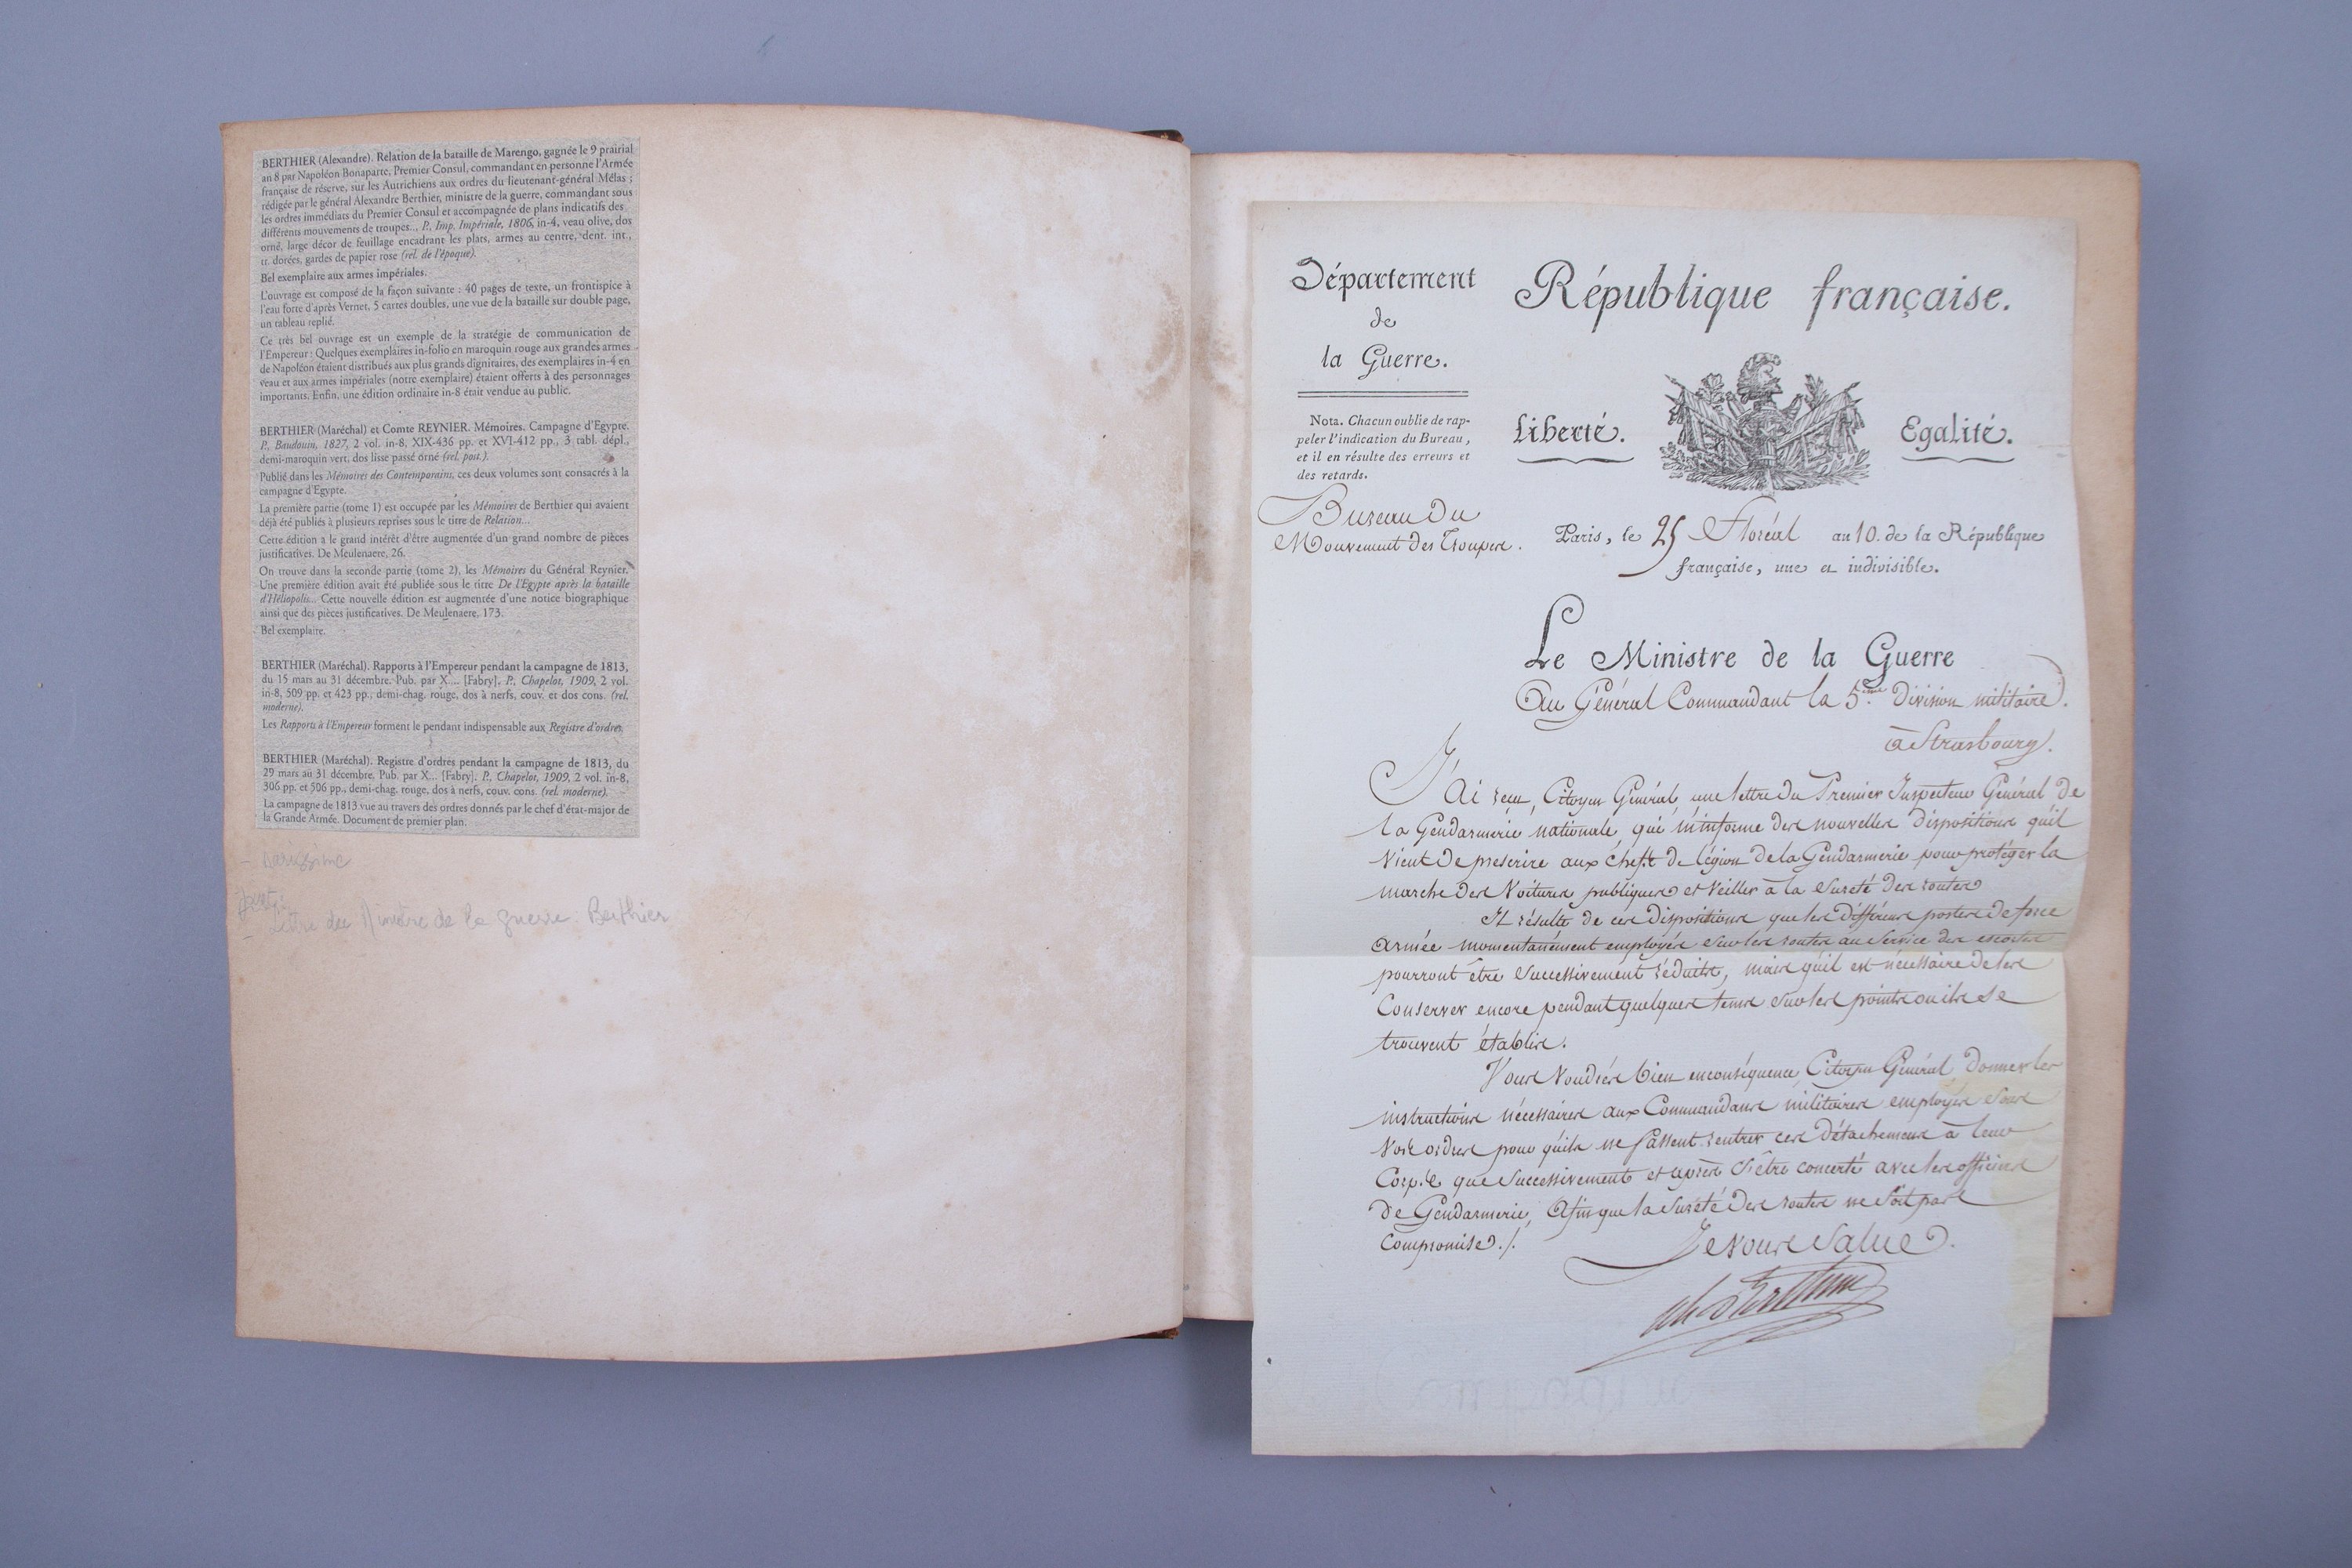 BERTHIER (Alexandre). Relation de la bataille de Marengo, gagnée le 9 prairial
an 8 par Napoléon Bonaparte, Premier Consul, commandant en personne l'Armée
française de réserve, sur les Autrichiens aux ordres du lieutenant-général Mélas ;
rédigée par le général Alexandre Berthier, ministre de la guerre, commandant sous
les ordres immédiats du Premier Consul et accompagnée de plans indicatifs des
différents mouvements de troupes... P., Imp. Impériale, 1806, in-4, veau olive, dos
orné, large décor de feuillage encadrant les plats, armes au centre, dent. int.,
tr. dorées, gardes de papier rose (rel. de l'époque).
Bel exemplaire aux armes impériales.
L'ouvrage est composé de la façon suivante : 40 pages de texte, un frontispice à
l'eau forte d'après Vernet, 5 cartes doubles, une vue de la bataille sur double page,
un tableau replié.
Ce très bel ouvrage est un exemple de la stratégie de communication de
l'Empereur : Quelques exemplaires in-folio en maroquin rouge aux grandes armes
de Napoléon étaient distribués aux plus grands dignitaires, des exemplaires in-4 en
veau et aux armes impériales (notre exemplaire) étaient offerts à des personnages
importants. Enfin, une édition ordinaire in-8 était vendue au public.
BERTHIER (Maréchal) et Comte REYNIER. Mémoires. Campagne d'Egypte.
P., Baudouin, 1827, 2 vol. in-8, XIX-436 pp. et XVI-412 pp., 3 tabl. dépl.,
demi-maroquin vert, dos lisse passé orné (rel. post.).
Publié dans les Mémoires des Contemporains, ces deux volumes sont consacrés à la
campagne d'Egypte.
La première partie (tome 1) est occupée par les Mémoires de Berthier qui avaient
déjà été publiés à plusieurs reprises sous le titre de Relation...
Cette édition a le grand intérêt d'être augmentée d'un grand nombre de pièces
justificatives. De Meulenaere, 26.
On trouve dans la seconde partie (tome 2), les Mémoires du Général Reynier.
Une première édition avait été publiée sous le titre De l'Egypte après la bataille
d'Héliopolis... Cette nouvelle édition est augmentée d'une notice biographique
ainsi que des pièces justificatives. De Meulenaere, 173.
Bel exemplaire.
BERTHIER (Maréchal). Rapports à l'Empereur pendant la campagne de 1813,
du 15 mars au 31 décembre. Pub. par X... [Fabry]. P., Chapelot, 1909, 2 vol.
in-8, 509 pp. et 423 pp., demi-chag. rouge, dos à nerfs, couv. et dos cons. (rel.
moderne).
Les Rapports à l'Empereur forment le pendant indispensable aux Registre d'ordres.
BERTHIER (Maréchal). Registre d'ordres pendant la campagne de 1813, du
29 mars au 31 décembre. Pub. par X... [Fabry]. P., Chapelot, 1909, 2 vol. in-8,
306 pp. et 506 pp., demi-chag. rouge, dos à nerfs, couv. cons. (rel. moderne).
La campagne de 1813 vue au travers des ordres donnés par le chef d'état-major de
la Grande Armée. Document de premier plan.
- rarissime
- lettre du Ministre de la guerre : Berthier
Département
de
la Guerre.
République française.
Nota. Chacun oublie de rap-
peler l'indication du Bureau,
et il en résulte des erreurs et
des retards.
Liberté.
Egalité.
Bureau Du
Mouvement des Troupes.
Paris, le 25 Floréal an 10. de la République
française, une et indivisible.
Le Ministre de la Guerre
Au Général Commandant la 5.ème Division militaire.
à Strasbourg.
J'ai reçu, Citoyen Général, une lettre du Premier Inspecteur Général de
la Gendarmerie nationale, qui m'informe des nouvelles dispositions qu'il
vient de prescrire aux chefs de légion de la Gendarmerie pour protéger la
marche des Voitures publiques et veiller à la sureté des routes
Il résulte de ces dispositions que les différens postes de force
armée momentanément employés sur les routes au service des escortes
pourront être successivement réduits, mais qu'il est nécessaire de les
Conserver encore pendant quelques tems sur les points ou ils se
trouvent établis.
Vous voudrés bien en conséquence, Citoyen Général donner les
instructions nécessaires aux Commandans militaires employés sous
vos ordres pour qu'ils ne fassent rentrer ces Détachemens à leur
Corps que successivement et après s'être concerté avec les officiers
de Gendarmerie, afin que la sureté des routes ne soit pas
compromise ./.
Je vous Salue.
Alex Berthier